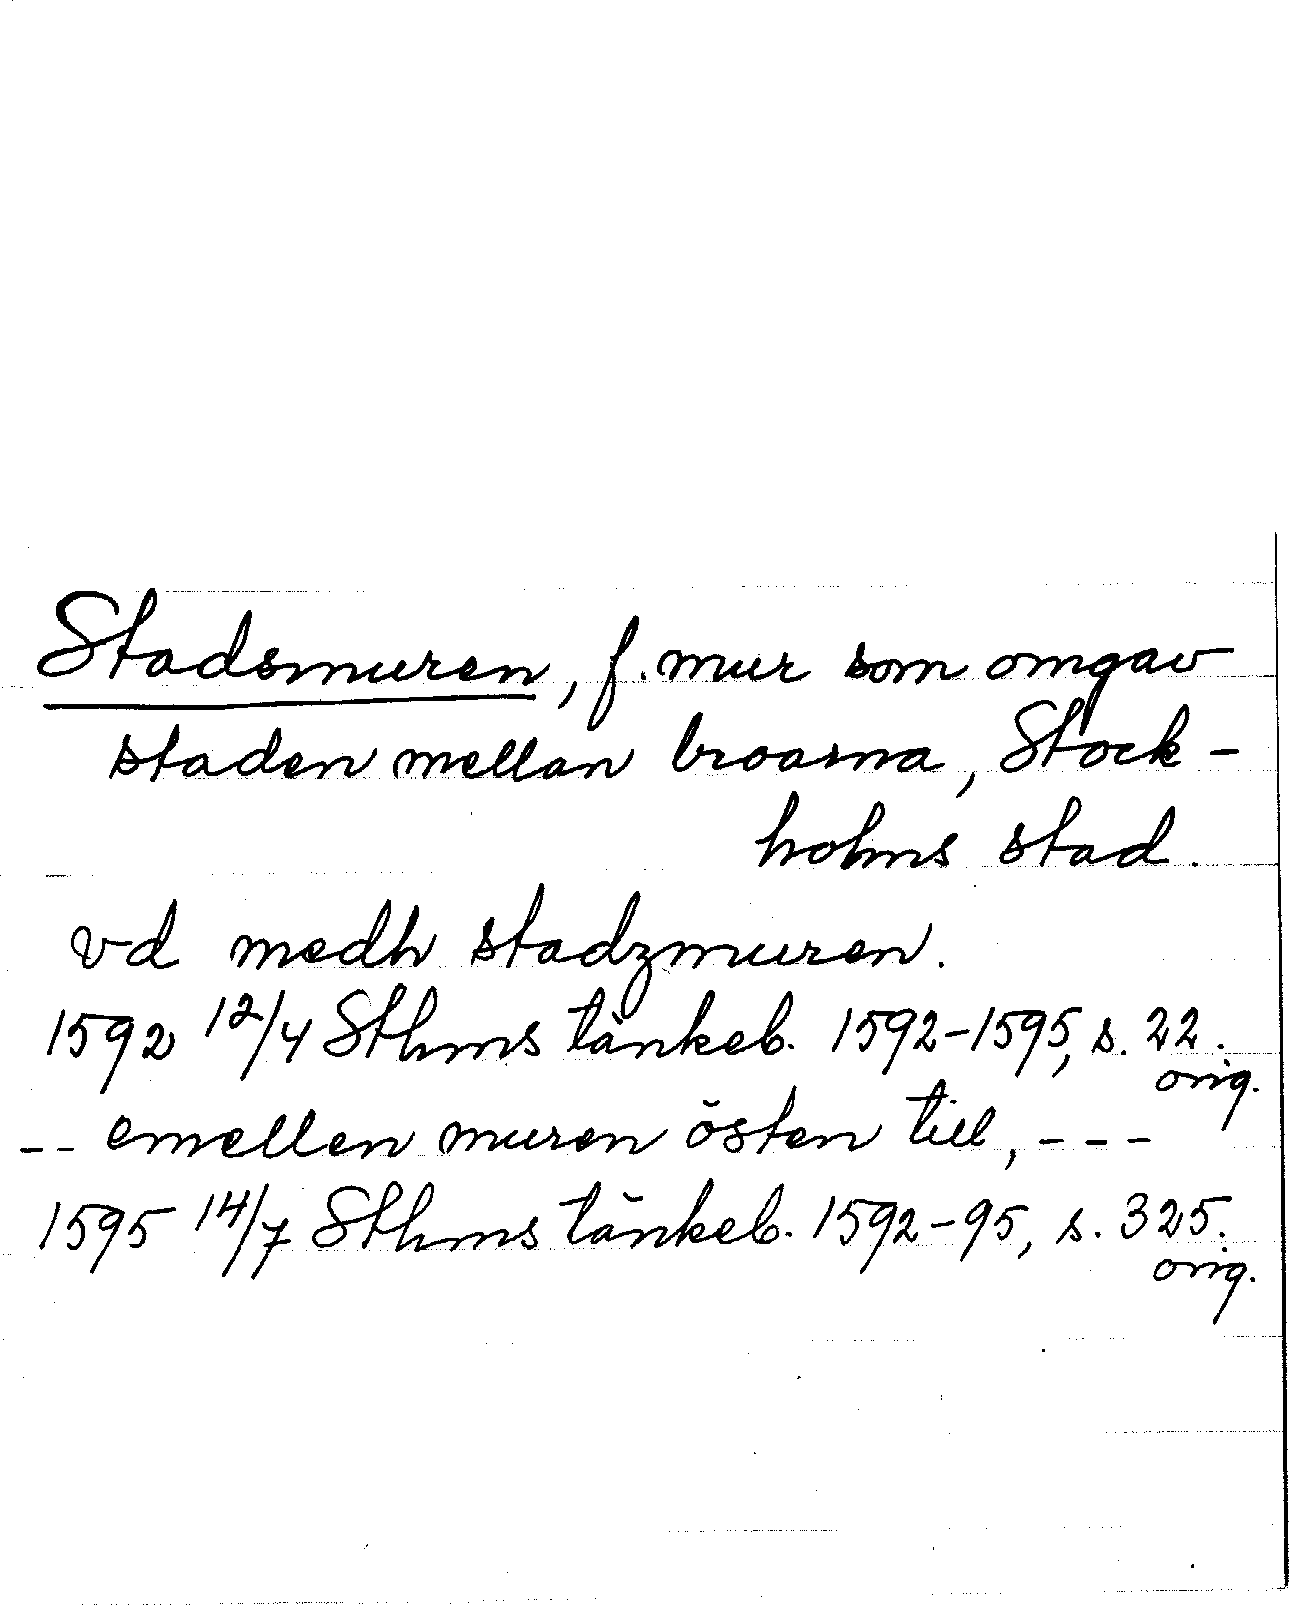 Stadsmuren, f. mur som omgav
staden mellan broarna, Stock-
holms stad.
vd medh stadzmuren.
1592 12/4 Sthms tänkeb. 1592-1595, s. 22.
orig.
-- emellen muren östen till, ---
1595 14/7 Sthms tänkeb. 1592-95, s. 325.
orig.